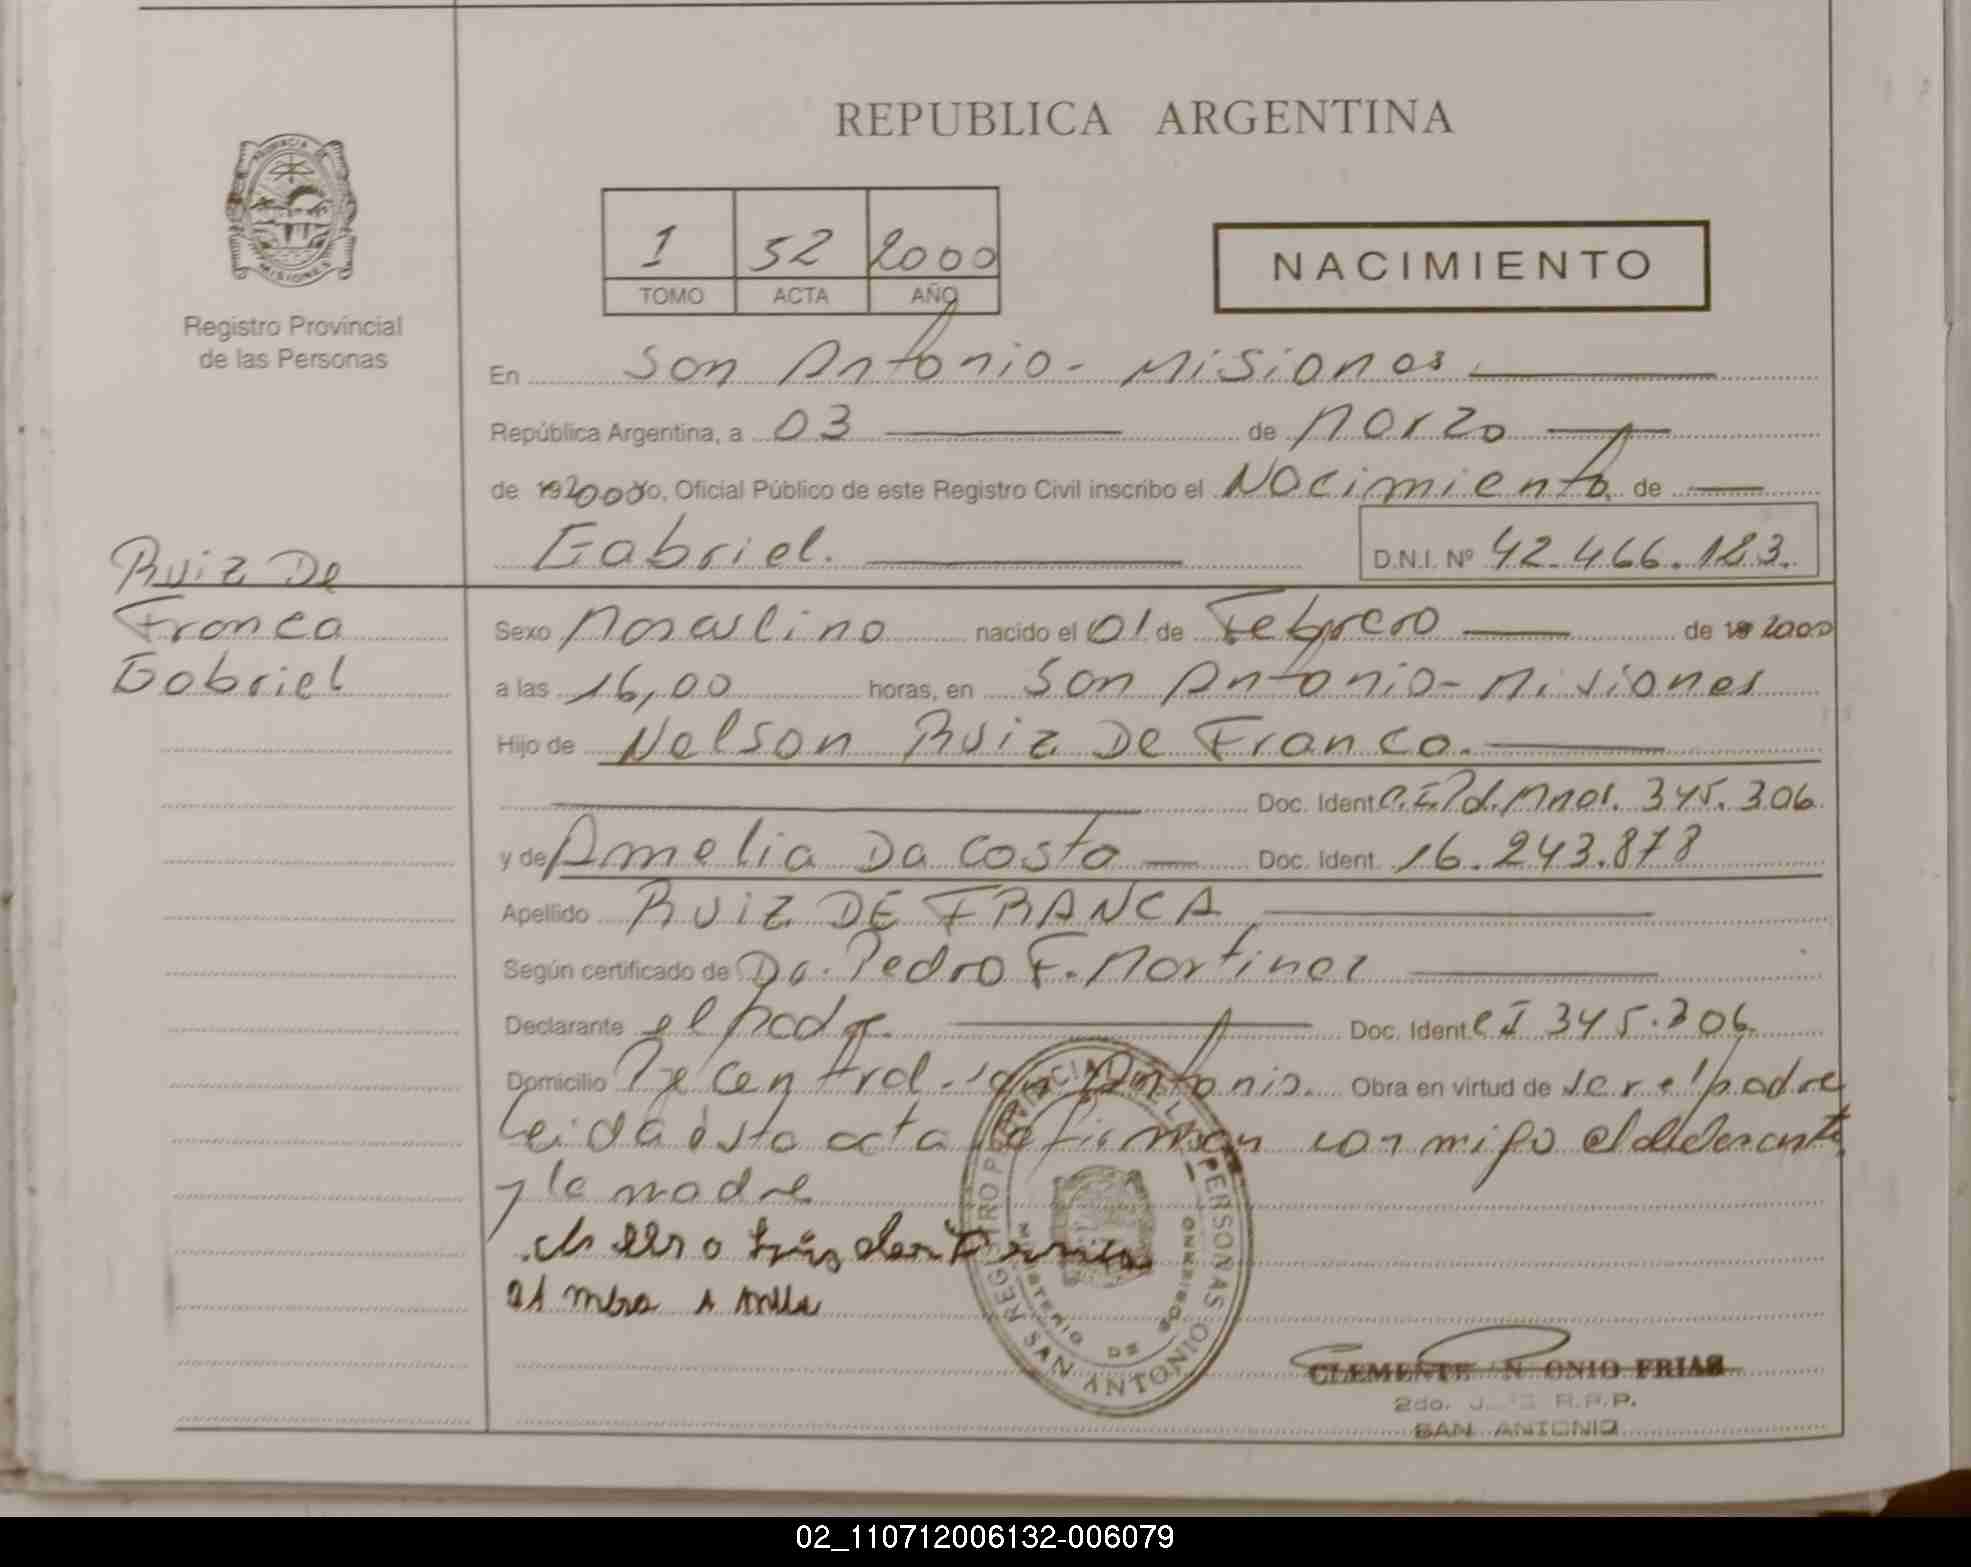 REPUBLICA ARGENTINA
PROVINCIA DE MISIONES
Registro Provincial
de las Personas
1 52 2000
TOMO ACTA AÑO
NACIMIENTO
En San Antonio - Misiones
República Argentina, a 03 de Marzo
de 192000 yo, Oficial Público de este Registro Civil inscribo el Nacimiento de
Gabriel. D.N.I. Nº 42.466.183.
Ruiz De
Franca
Gabriel
Sexo Masculino nacido el 01 de Febrero de 19 2000
a las 16,00 horas, en San Antonio - Misiones
Hijo de Nelson Ruiz De Franca.
Doc. Ident. C.I. Mnes. 345.306
y de Amelia Da Costa Doc. Ident. 16.243.878
Apellido RUIZ DE FRANCA
Según certificado de Da. Pedro F. Martinez
Declarante el padre Doc. Ident. CI 345.306
Domicilio Central - San Antonio. Obra en virtud de ser el padre
Leida ésta acta la firman conmigo el declarante
y la madre
REGISTRO PROVINCIAL DE LAS PERSONAS
MINISTERIO DE GOBIERNO
SAN ANTONIO
CLEMENTE N ONIO FRIAS
2do. J R.P.P.
SAN ANTONIO
02_110712006132-006079